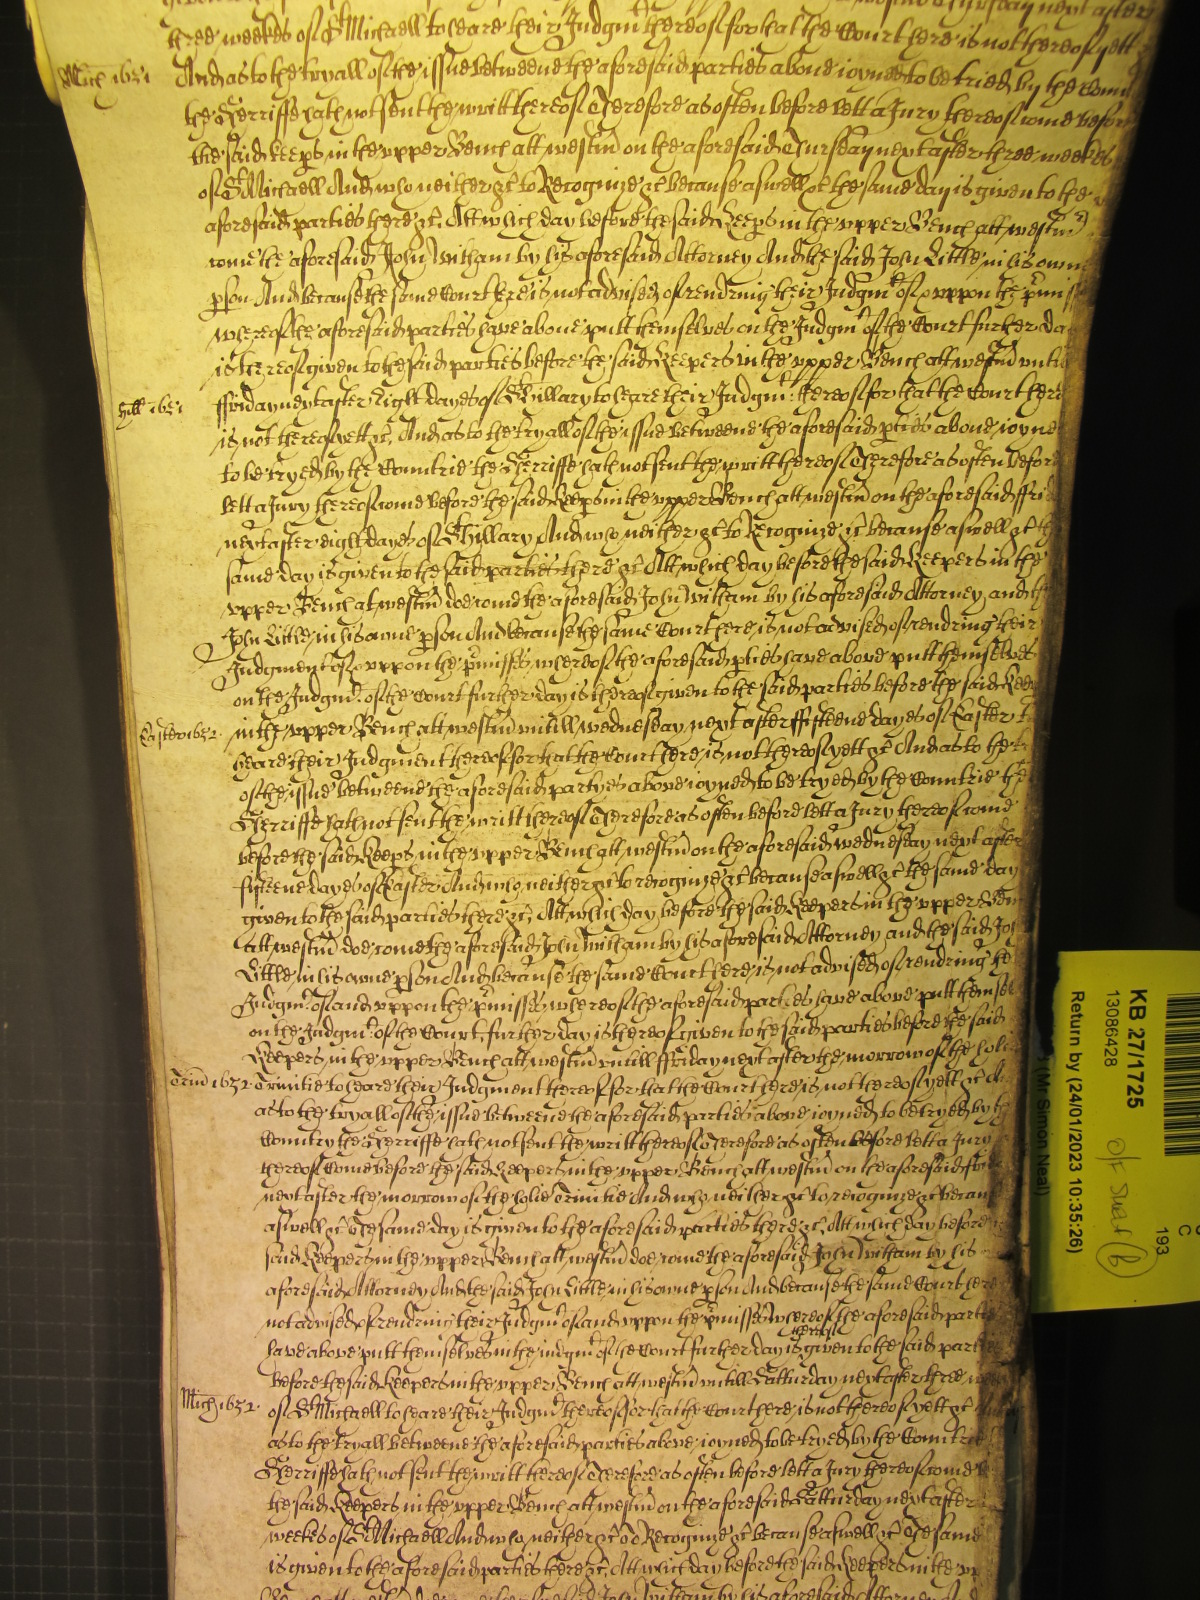 three weekes of St Michaell to heare their Judgmt thereof for that the Court here is not thereof yett
Mich 1651 And as to the tryall of the issue betweene the aforesaid parties above ioyned to be tried by the Coun
the Sherriffe hath not sent the writt thereof Therefore as often before lett a Jury thereof come before
the said Keeps in the upper Bench att westm on the aforesaid Thursday next after three weekes
of St Michaell And who neither &c to Recognize &c because aswell &c the same day is given to the
aforesaid parties there &c. Att which day before the said Keeps in the upper Bench att westm
come the aforesaid John Witham by his aforesaid Attorney And the said John Little in his owne
pson And because the same Court here is not advised of rendring their Judgmt of & uppon the pmiss
whereof the aforesaid parties have above putt themselves on the Judgmt of the Court further day
is thereof given to the said parties before the said Keepers in the upper Bench att westm untill
Hill 1651 ffriday next after Eight dayes of St Hillary to heare their Judgmt thereof for that the Court here
is not thereof yett &c. And as to the tryall of the issue betweene the aforesaid pties above ioyne
to be tryed by the Countrie the Sherriffe hath not sent the writt thereof Therefore as often before
lett a Jury thereof come before the said Keeps in the upper Bench att westm on the aforesaid ffri
next after eight dayes of St Hillary And who neither &c to Recognize &c because aswell &c th
same day is given to the said parties there &c Att which day before the said Keepers in the
upper Bench at westm doe come the aforesaid John Witham by his aforesaid Attorney and th
John Little in his owne pson And because the same Court here is not advised of rendring their
Judgment of & uppon the pmisses whereof the aforesaid pties have above putt themselves
on the Judgmt of the Court further day is thereof given to the said parties before the said Keep
Easter 1652. in the upper Bench att westm untill wednesday next after ffifteene dayes of Easter t
heare their Judgment thereof for that the Court here is not thereof yett &c And as to the t
of the issue betweene the aforesaid partyes above ioyned to be tryed by the Countrie the
Sherriffe hath not sent the writt thereof Therefore as often before lett a Jury thereof come
before the said Keeps in the upper Bench att westm on the aforesaid wednesday next after
fifteene dayes of Easter And who neither &c to recognize &c because aswell &c the same day
given to the said parties there &c. Att which day before the said Keepers in the upper Ben
att westm doe come the aforesaid John Witham by his aforesaid Attorney and the said Joh
Little in his owne pson And because the same Court here is not advised of rendring the
Judgmt of and uppon the pmisses whereof the aforesaid parties have above putt themsel
on the Judgmt of the Court, further day is thereof given to the said parties before the said
Keepers in the upper Bench att westm untill ffriday next after the morrow of the holie
Trin 1652. Trinitie to heare their Judgment thereof for that the Court here is not thereof yett &c A
as to the tryall of the issue betweene the aforesaid parties above ioyned to be tryed by th
Country the Sherriffe hath not sent the writt thereof Therefore as often before lett a Jury
thereof Come before the said Keepers in the upper Bench att westm on the aforesaid ffrid
next after the morrow of the holie Trinitie And who neither &c to recognize &c becaus
aswell &c The same day is given to the aforesaid parties there &c. Att which day before
said Keepers in the upper Bench att westm doe come the aforesaid John Witham by his
aforesaid Attorney And the said John Little in his owne pson And because the same Court here
not advised of rendring their Judgmt of and uppon the pmisses whereof the aforesaid partie
have above putt themselves in the iudgmt of the Court further day is thereof given to the said parties
before the said Keepers in the upper Bench att westm untill Satturday next after three
Mich 1652. of St Michaell to heare their Judgmt thereof for that the Court here is not thereof yett &c
as to the tryall betweene the aforesaid parties above ioyned to be tryed by the Countrie
Sherriffe hath not sent the writt thereof Therefore as often before lett a Jury thereof come
the said Keepers in the upper Bench att westm on the aforesaid Satturday next after
weekes of St Michaell And who neither &c to Recognize &c because aswell &c The same
is given to the aforesaid parties there &c. Att which day before the said Keepers in the up
John Witham by his aforesaid Attorney And
KB 27/1725
13086428
Return by (24/01/2023 10:35:26)
(Mr Simon Neal)
193
C